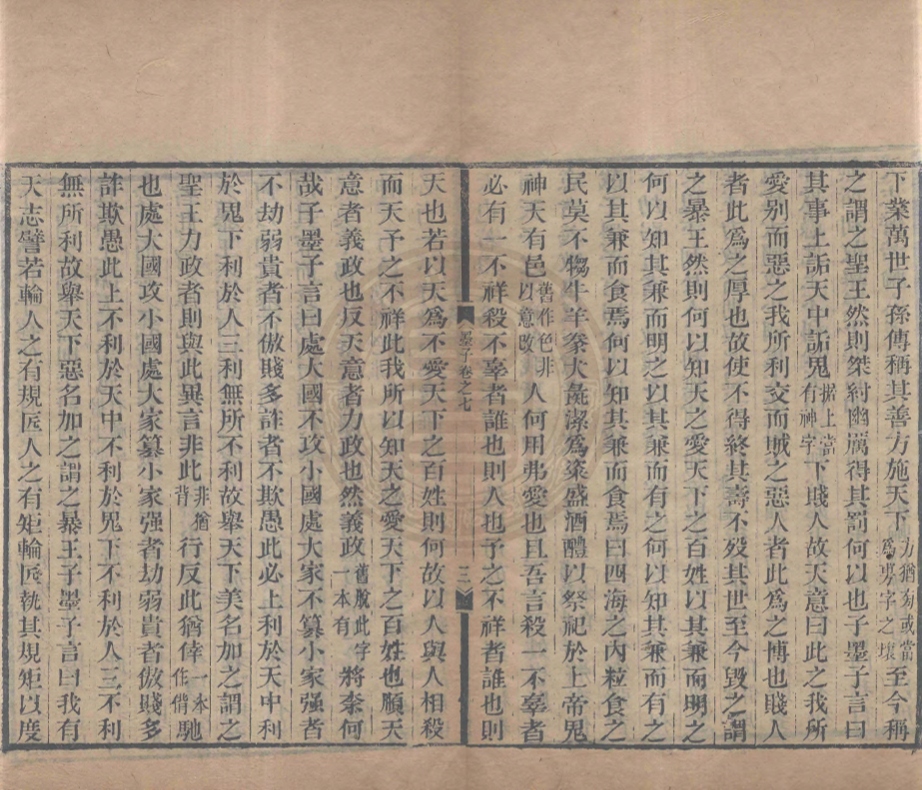 下業萬世子孫傳其善方施天下方猶旁或當爲旉字之壞至今稱
之謂之聖王然則桀紂幽厲得其罰何以也子墨子言曰
其事上詬天中詬鬼據上當有神字下賤人故天意曰此之我所
愛别而惡之我所利交而賊之惡人者此爲之博也賤人
者此爲之厚也故使不得終其壽不殁其世至今毁之謂
之暴王然則何以知天之愛天下之百姓以其兼而明之
何以知其兼而明之以其兼而有之何以知其兼而有之
以其兼而食焉何以知其兼而食焉曰四海之内粒食之
民莫不犓牛羊豢犬彘潔爲粢盛酒醴以祭祀於上帝鬼
神天有邑舊作色非以意改人何用弗愛也且吾言殺一不辜者
必有一不祥殺不辜者誰也則人也予之不祥者誰也則
墨子卷之七
三
天也若以天爲不愛天下之百姓則何故以人與人相殺
而天予之不祥此我所以知天之愛天下之百姓也順天
意者義政也反天意者力政也然義政舊脫此字一本有將柰何
哉子墨子言曰處大國不攻小國處大家不篡小家强者
不劫弱貴者不傲賤多詐者不欺愚此必上利於天中利
於鬼下利於人三利無所不利故舉天下美名加之謂之
聖王力政者則與此異言非此非猶背行反此猶倖一本作偝馳
也處大國攻小國處大家篡小家强者劫弱貴者傲賤多
詐欺愚此上不利於天中不利於鬼下不利於人三不利
無所利故舉天下惡名加之謂之暴王子墨子言曰我有
天志譬若輪人之有規匠人之有矩輪匠執其規矩以度